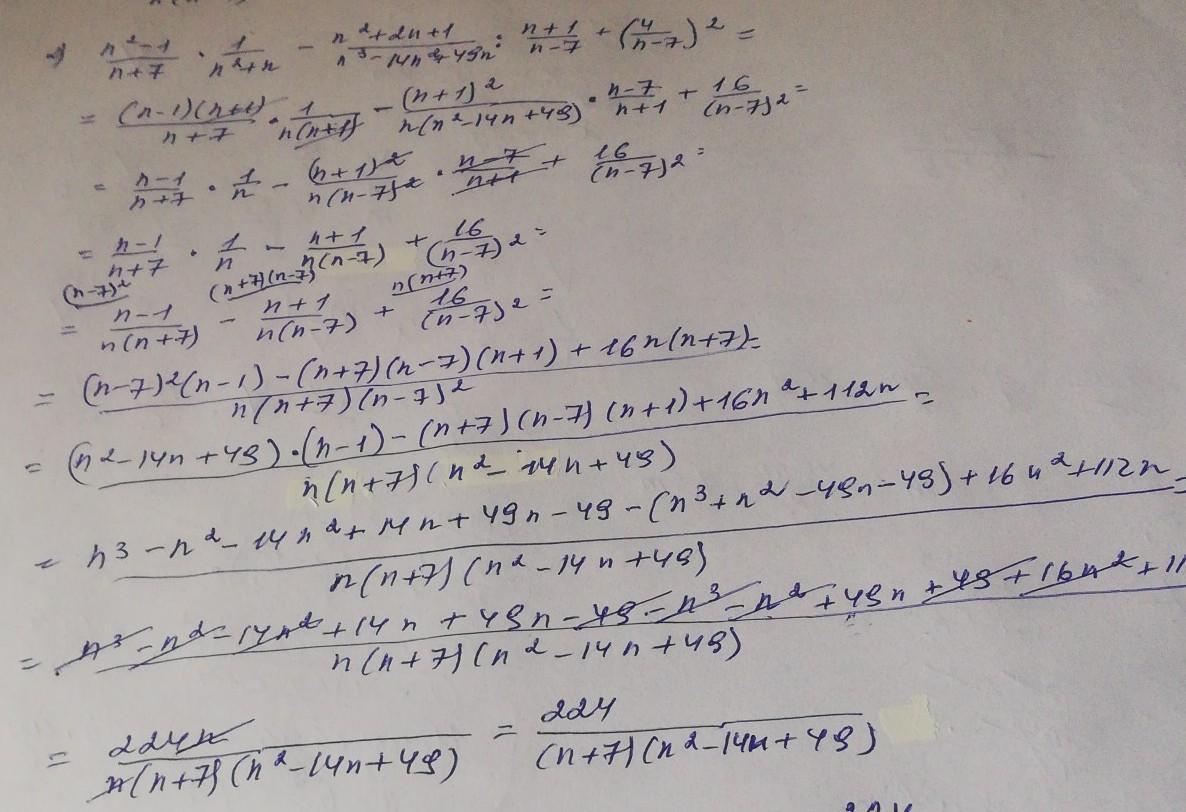 2) \frac{n^2-1}{n+7} · \frac{1}{n^2+n} - \frac{n^2+2n+1}{n^3-14n^2+49n} : \frac{n+1}{n-7} + (\frac{4}{n-7})^2 =
= \frac{(n-1)(n+1)}{n+7} · \frac{1}{n(n+1)} - \frac{(n+1)^2}{n(n^2-14n+49)} · \frac{n-7}{n+1} + \frac{16}{(n-7)^2} =
= \frac{n-1}{n+7} · \frac{1}{n} - \frac{(n+1)^2}{n(n-7)^2} · \frac{n-7}{n+1} + \frac{16}{(n-7)^2} =
= \frac{n-1}{n+7} · \frac{1}{n} - \frac{n+1}{n(n-7)} + \frac{16}{(n-7)^2} =
(n-7)^2 (n+7)(n-7) n(n+7)
= \frac{n-1}{n(n+7)} - \frac{n+1}{n(n-7)} + \frac{16}{(n-7)^2} =
= \frac{(n-7)^2(n-1)-(n+7)(n-7)(n+1)+16n(n+7)}{n(n+7)(n-7)^2} =
= \frac{(n^2-14n+49)·(n-1)-(n+7)(n-7)(n+1)+16n^2+112n}{n(n+7)(n^2-14n+49)} =
= \frac{n^3-n^2-14n^2+14n+49n-49-(n^3+n^2-49n-49)+16n^2+112n}{n(n+7)(n^2-14n+49)} =
= \frac{n^3-n^2-14n^2+14n+49n-49-n^3-n^2+49n+49+16n^2+11}{n(n+7)(n^2-14n+49)}
= \frac{224n}{n(n+7)(n^2-14n+49)} = \frac{224}{(n+7)(n^2-14n+49)}